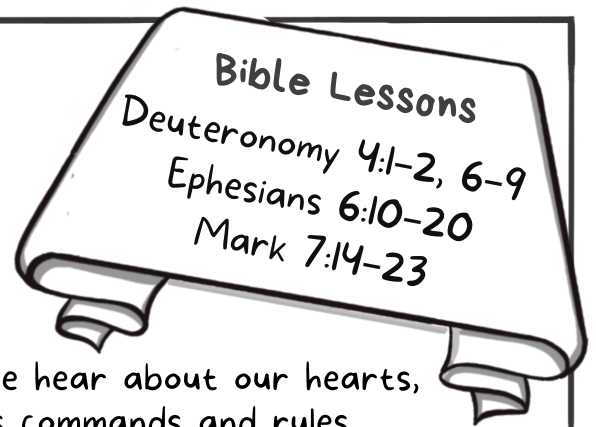 Bible Lessons
Deuteronomy 4:1–2, 6–9
Ephesians 6:10–20
Mark 7:14–23
hear about our hearts,
commands and rules